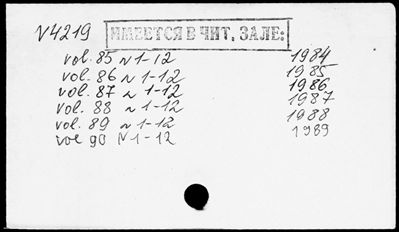 N4219 ИМЕЕТСЯ В ЧИТ. ЗАЛЕ:
vol. 85 N 1-12 1984
vol. 86 N 1-12 1985
vol. 87 N 1-12 1986
vol. 88 N 1-12 1987
vol. 89 N 1-12 1988
vol 90 N 1-12 1989